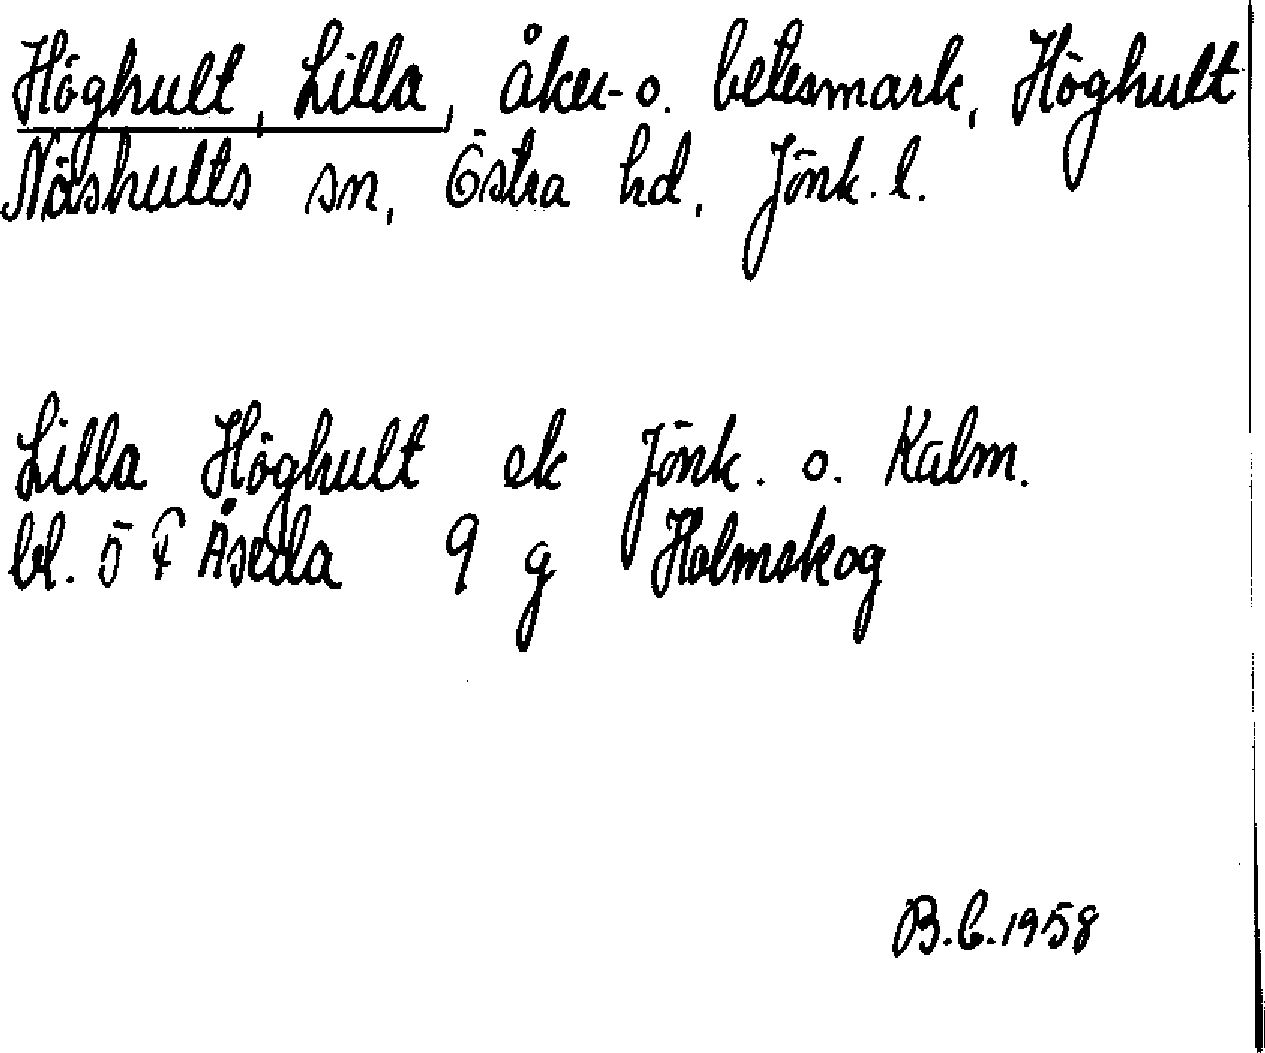 Höghult, Lilla, åker- o. betesmark, Höghult
Näshults sn, Östra hd, Jönk. l.
Lilla Höghult ek Jönk. o. Kalm.
bl. 5 F Åseda 9 g Holmskog
B.C. 1958